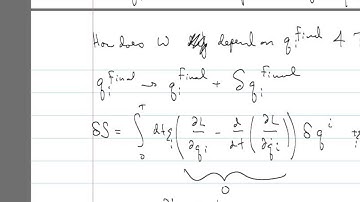 How does W depend on q_i^{final} & T
q_i^{final} → q_i^{final} + δq_i^{final}
δS = ∫_0^T dt Σ_i ( ∂L/∂q_i - d/dt ( ∂L/∂q̇_i ) ) δq^i
0